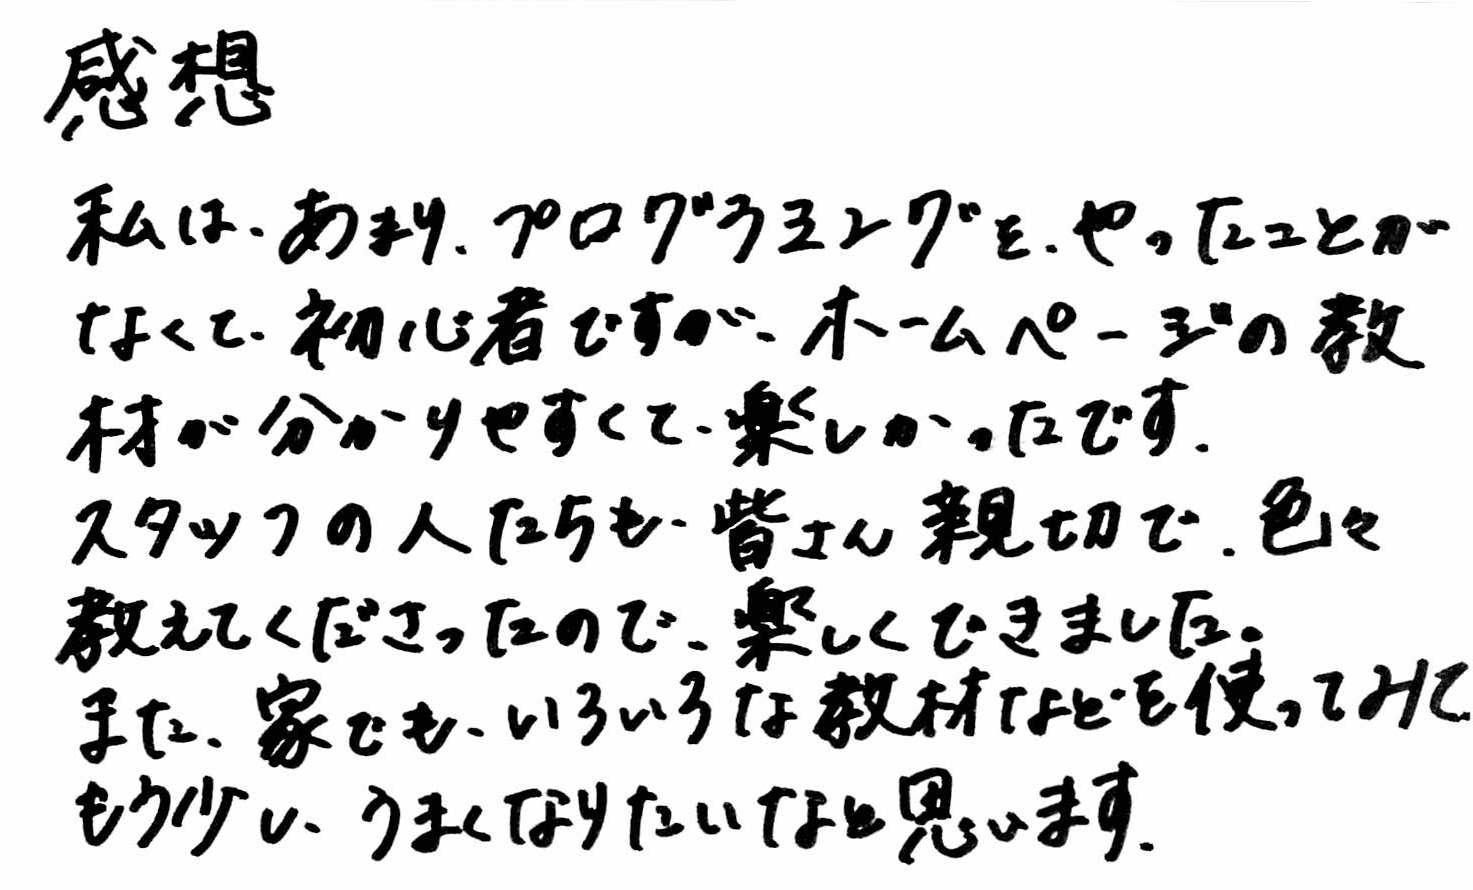 感想
私は、あまり、プログラミングを、やったことが
なくて、初心者ですが、ホームページの教
材が分かりやすくて、楽しかったです。
スタッフの人たちも、皆さん親切で、色々
教えてくださったので、楽しくできました。
また、家でも、いろいろな教材などを使ってみて
もう少し、うまくなりたいなと思います。